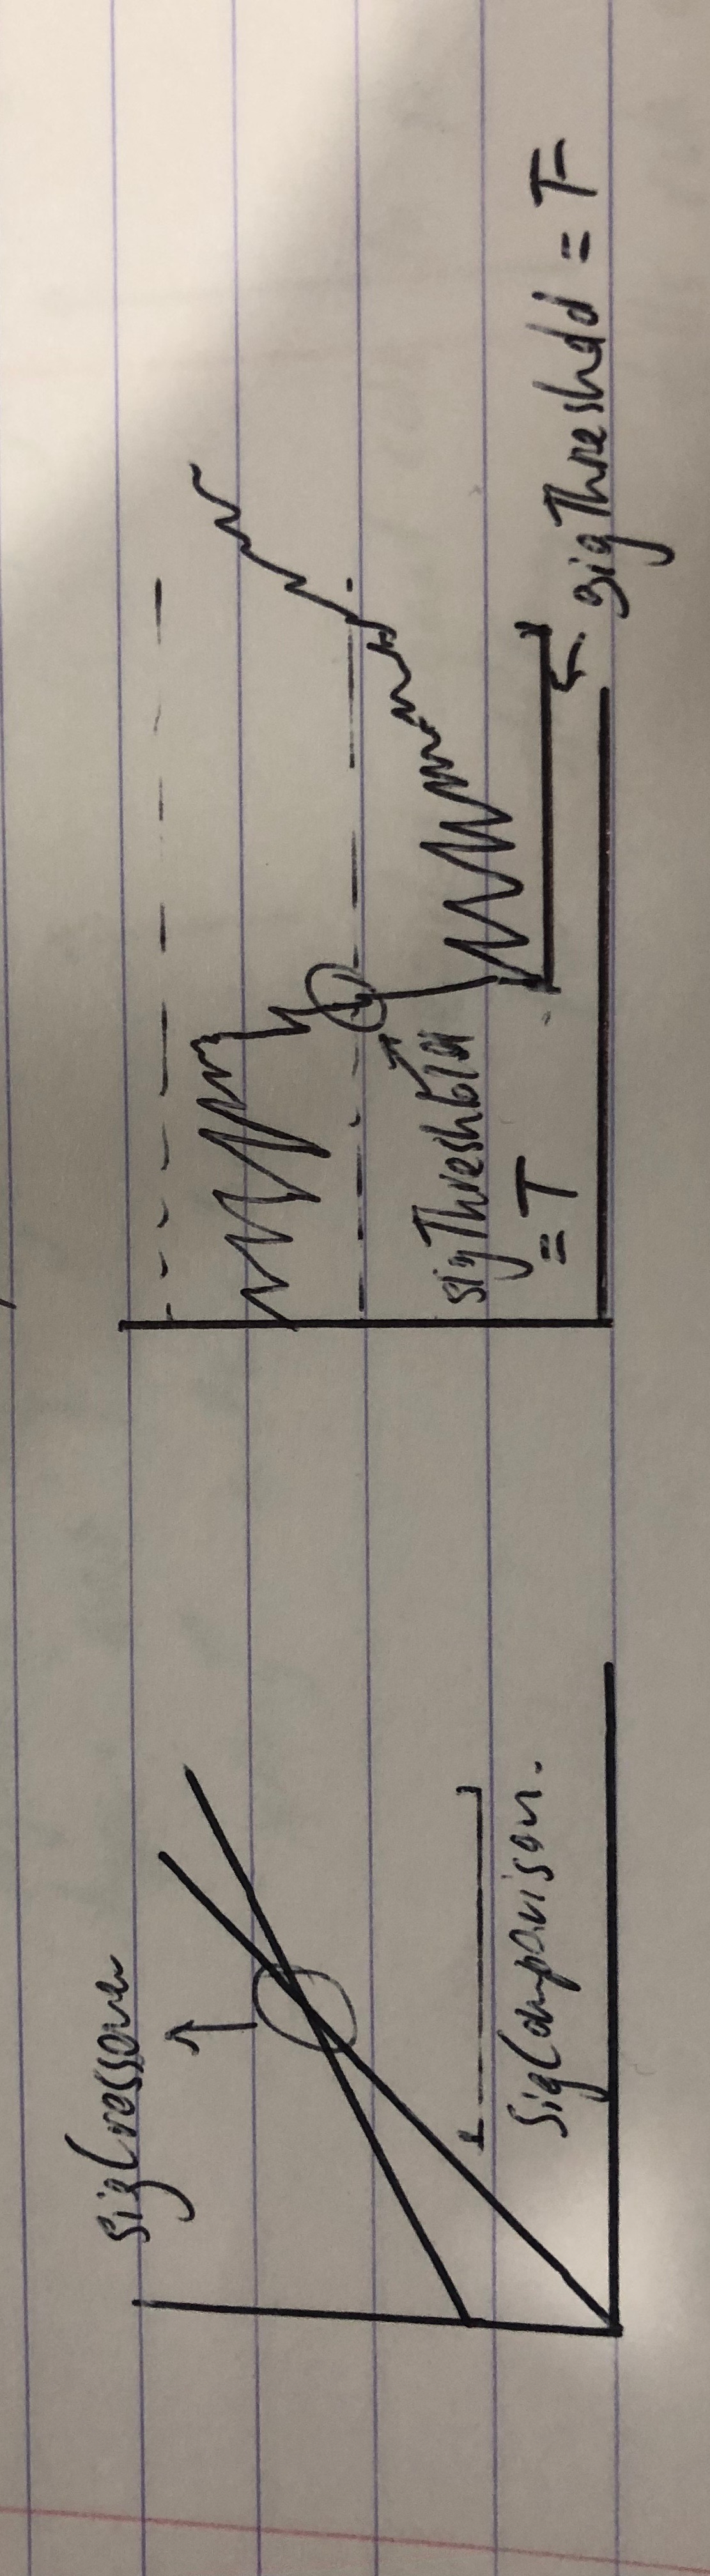 sigCrossover
sigComparison.
sigThreshold
= T
sigThreshold = F